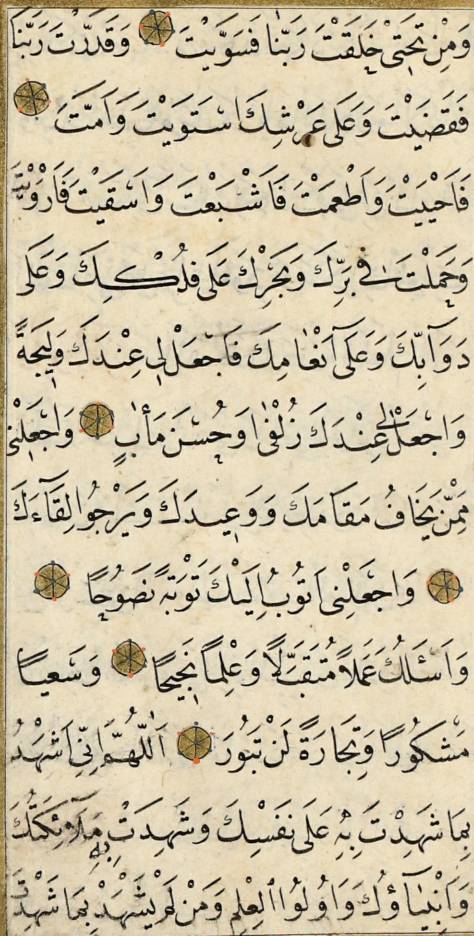 وَمِنْ تَحْتِى خَلَقْتَ رَبَّنَا فَسَوَّيْتَ وَقَدَّرْتَ رَبَّنَا
فَقَضَيْتَ وَعَلَى عَرْشِكَ اسْتَوَيْتَ وَاَمَتَّ
فَاَحْيَيْتَ وَاَطْعَمْتَ فَاَشْبَعْتَ وَاَسْقَيْتَ فَاَرْوَيْتَ
وَحَمَلْتَ فِى بَرِّكَ وَبَحْرِكَ عَلَى فُلْكِكَ وَعَلَى
دَوَآبِّكَ وَعَلَى اَنْعَامِكَ فَاجْعَلْ لِى عِنْدَكَ وَلِيجَةً
وَاجْعَلْ لِى عِنْدَكَ زُلْفٰى وَحُسْنَ مَاٰبٍ وَاجْعَلْنِى
مِمَّنْ يَخَافُ مَقَامَكَ وَوَعِيدَكَ وَيَرْجُوا لِقَآءَكَ
وَاجْعَلْنِى اَتُوبُ اِلَيْكَ تَوْبَةً نَصُوحًا
وَاَسْئَلُكَ عَمَلًا مُتَقَبَّلًا وَعِلْمًا نَجِيحًا وَسَعْيًا
مَشْكُورًا وَتِجَارَةً لَنْ تَبُورَ اَللّٰهُمَّ اِنِّى اَشْهَدُ
بِمَا شَهِدْتَ بِهِ عَلَى نَفْسِكَ وَشَهِدَتْ بِهِ مَلَآئِكَتُكَ
وَاَنْبِيَآؤُكَ وَاُولُوا الْعِلْمِ وَمَنْ لَمْ يَشْهَدْ بِمَا شَهِدْتَ